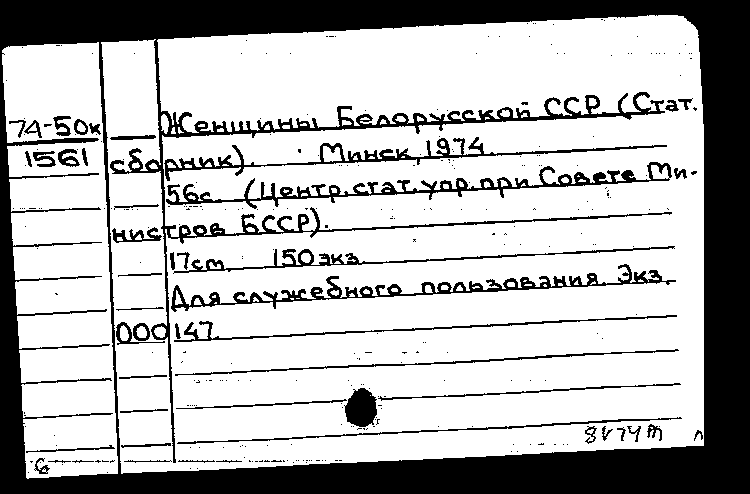 74-50к Женщины Белорусской ССР (Стат.
1561 сборник). Минск, 1974.
56с. (Центр.стат.упр.при Совете Ми-
нистров БССР).
17cm. 150 экз.
Для служебного пользования. Экз.
000147.
8 V 74 m